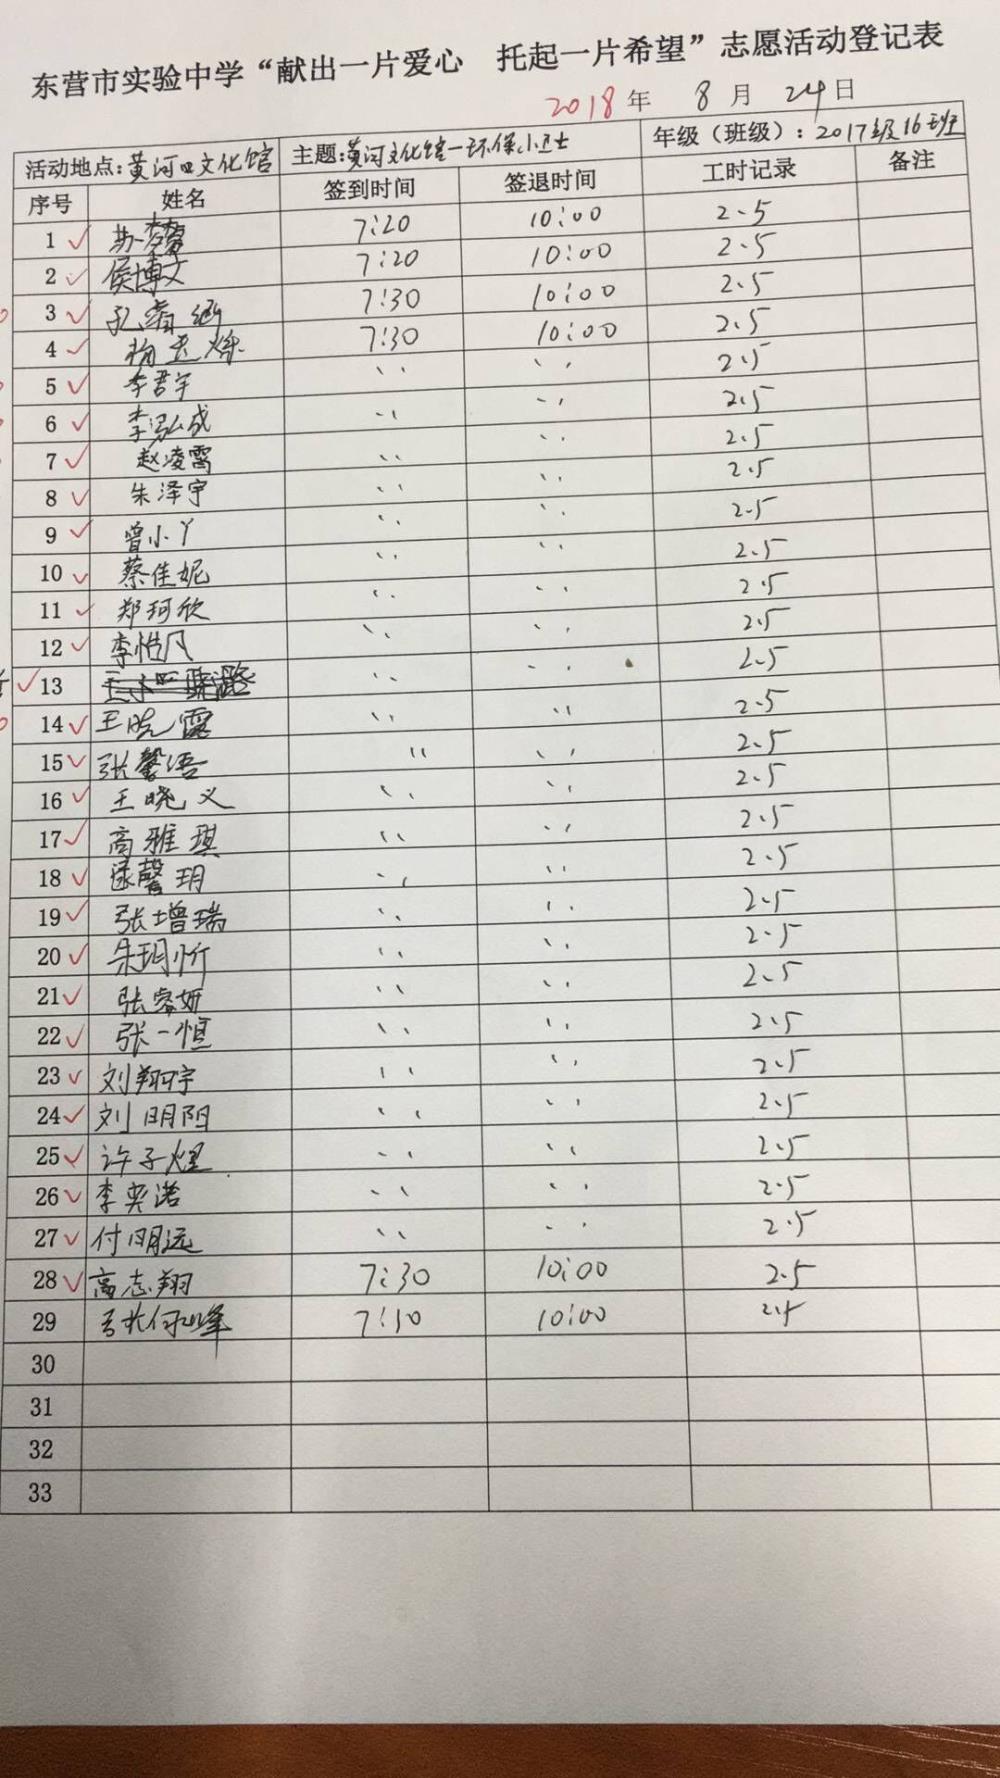 东营市实验中学“献出一片爱心 托起一片希望”志愿活动登记表
2018年 8月 24日
活动地点:黄河口文化馆 主题:黄河文化馆一环保小卫士 年级（班级）：2017级16班
序号 姓名 签到时间 签退时间 工时记录 备注
1 ✓ 苏梦 7:20 10:00 2.5
2 ✓ 侯博文 7:20 10:00 2.5
3 ✓ 孔 7:30 10:00 2.5
4 ✓ 杨 7:30 10:00 2.5
5 ✓ 李君宇 〃 〃 2.5
6 ✓ 李弘成 〃 〃 2.5
7 ✓ 赵凌霄 〃 〃 2.5
8 ✓ 朱泽宇 〃 〃 2.5
9 ✓ 曾小丫 〃 〃 2.5
10 ✓ 蔡佳妮 〃 〃 2.5
11 ✓ 郑珂欣 〃 〃 2.5
12 ✓ 李恺凡 〃 〃 2.5
13 ✓ 〃 〃 2.5
14 ✓ 王晓霞 〃 〃 2.5
15 ✓ 张馨语 〃 〃 2.5
16 ✓ 王晓义 〃 〃 2.5
17 ✓ 高雅琪 〃 〃 2.5
18 ✓ 逯馨玥 〃 〃 2.5
19 ✓ 张增瑞 〃 〃 2.5
20 ✓ 朱玥忻 〃 〃 2.5
21 ✓ 张睿妍 〃 〃 2.5
22 ✓ 张一恒 〃 〃 2.5
23 ✓ 刘翔宇 〃 〃 2.5
24 ✓ 刘明阳 〃 〃 2.5
25 ✓ 许子煜 〃 〃 2.5
26 ✓ 李奕诺 〃 〃 2.5
27 ✓ 付明远 〃 〃 2.5
28 ✓ 高志翔 7:30 10:00 2.5
29 7:30 10:00 2.5
30
31
32
33